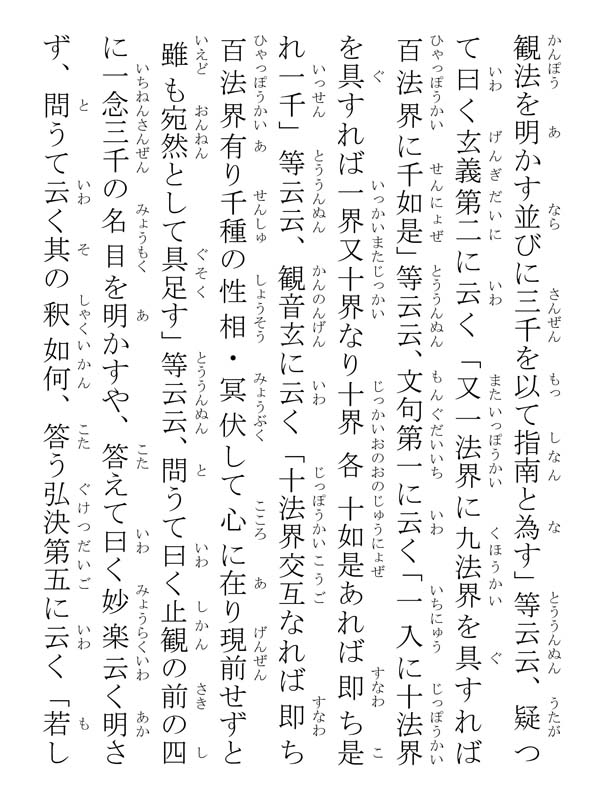 観法を明かす並びに三千を以て指南と為す」等云云、疑つ
て曰く玄義第二に云く「又一法界に九法界を具すれば
百法界に千如是」等云云、文句第一に云く「一入に十法界
を具すれば一界又十界なり十界各十如是あれば即ち是
れ一千」等云云、観音玄に云く「十法界交互なれば即ち
百法界有り千種の性相・冥伏して心に在り現前せずと
雖も宛然として具足す」等云云、問うて曰く止観の前の四
に一念三千の名目を明かすや、答えて曰く妙楽云く明さ
ず、問うて云く其の釈如何、答う弘決第五に云く「若し